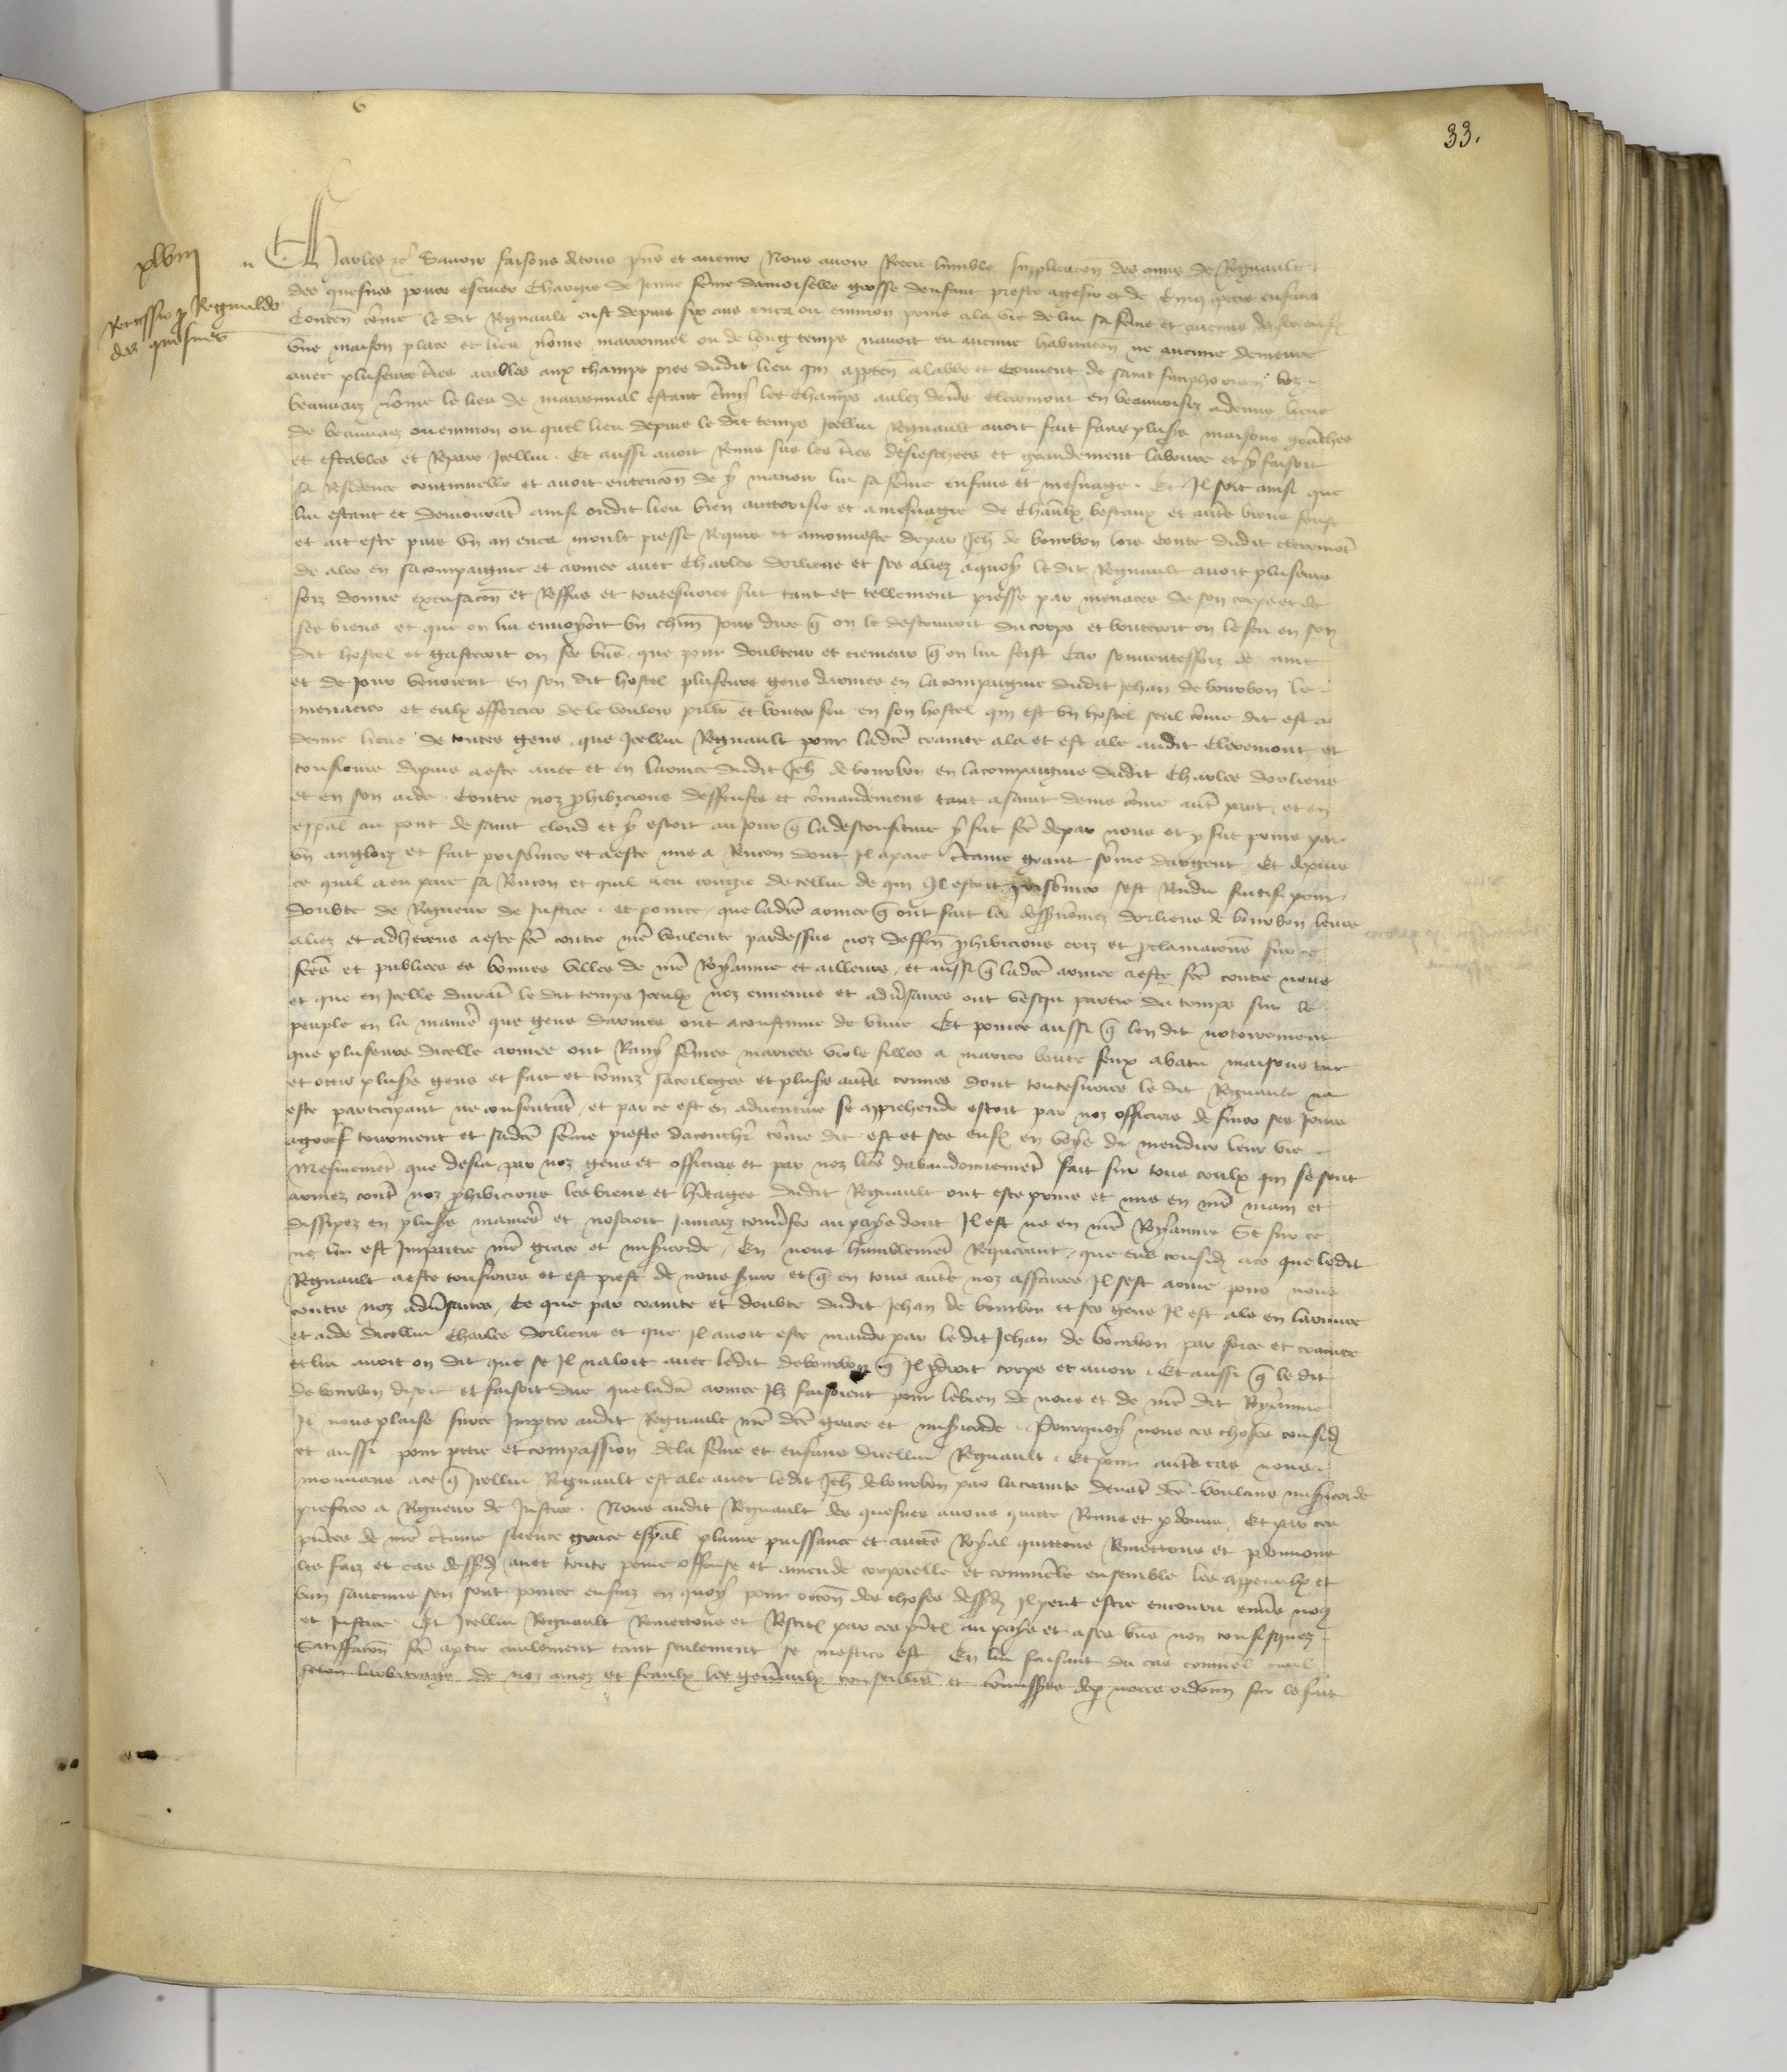 33.
xlviij
Remissio p Reginaldo
des quesnes
Charles etc Savoir faisons a tous pns et avenir Nous avoir Receu lumble supplicacon des amis de Regnault
des quesnes povre escuier Chargie de jeune feme damoiselle grosse denfant preste a gesir et de Cinq petis enfans
Conten come le dit Regnault eust depuis six ans enca ou environ prins a la vie de lui sa feme et aucuns de ses enfs
une maison place et lieu nome marronnel ou de long temps navoit eu aucune habitacon ne aucune demeure
avec pluseurs tres arables aux champs pres dudit lieu qui apptien a labbe et Couvent de saint simphorien lez
beauvaiz nome le lieu de marronnal estant emy les Champs alez devs Clermont en beauvoisiz a demie lieue
de beauvaiz ou environ ou quel lieu depuis le dit temps Icellui Regnault avoit fait faire plusrs maisons granches
et estables et Reparer Icellui . Et aussi avoit Remis sus les tres desieschees et grandement labourer et y faisoit
sa Residence continuelle et avoit entencon de y manoir lui sa feme enfans et mesnage . Et Il soit ainsi que
lui estant et demourat ainsi oudit lieu bien auctorisie et amesnagie de Chevlx bestaux et autrs biens feust
et ait este puis un an enca moult presse Requis et amonneste de par Jeh de bourbon lors Conte dudit Cleremot
de aler en sa compaignie et armee avec Charles dorliens et ses aliez a quoy le dit Regnault avoit pluseurs
foiz donne excusacon et Reffus et toutesvoies fut tant et tellement presse par menaces de son corps et de
ses biens et que on lui envoyoit un chun Jour dire q on le destruiroit du corps et bouteroit on le feu en son
dit hostel et gasteroit on ses bns . que pour doubteur et cremeur q on lui feist Car souventeffoiz de nuit
et de jour venoient en son dit hostel pluseurs gens darmes en la compaignie dudit Jehan de bourbon le
menacier et eulx efforcier de le vouloir pillier et bouter feu en son hostel qui est un hostel seul come dit est a
demie lieue de toutes gens . que Icellui Regnault pour ladce crainte ala et est ale audit Cleremont et
tousiours depuis a este avec et en larmee dudit Jeh de bourbon en la compaignie dudit Charles dorliens
et en son aide . Contre noz phibicions deffenses et comandemens tant a saint denis come autre part . et en
espal au pont de saint cloud et y estoit au jour q la desconfiture y fut fce de par nous et y fut prins par
un anglois et fait prisonnier et a este mis a Rencon dont Il a paie ctaine grant some dargent Et depuis
ce quil a eu paie sa Rencon et quil a eu congie de cellui de qui Il estoit prisonnier sest Rendu fuitif pour
doubte de Rigueur de Justice . et pource que ladce armee q ont fait les dessus nomez dorliens de bourbon leurs
aliez et adherens a este fce contre nre voulente pardessus noz deffen phibicions criz et pclamacions sur ce
fces et publiees es bonnes villes de nre Royaume et ailleurs . et aussi q ladce armee a este fce contre nous
et que en Icelle durat le dit temps Iceulx noz ennemis et advsaires ont vescu partie du temps sur le
peuple en la maniere que gens darmes ont acoustume de vivre Et pource aussi q len dit notoirement
que pluseurs dicelle armee ont Ravy femes mariees viole filles a marier boute feux abatu maisons tue
et occis plusrs gens et fait et comis sacrileges et plusrs autrs crimes dont toutesvoies le dit Regnault na
este participant ne consentat . et par ce est en adventure se apprehende estoit par noz officiers de finer ses jours
a grief tourment et sadce feme preste dacouchr come dit est et ses enfs en voye de mendier leur vie
Mesmemet que desia par noz gens et officiers et par noz lres dabandonnemet fait sur tous ceulx qui se sont
armez cont noz phibicions les biens et hitages dudit Regnault ont este prins et mis en nre main et
dissipez en plusrs manieres et noseroit jamaiz convser au pays dont Il est ne en nre Royaume Se sur ce
ne lui est Impartie nre grace et misicorde . En nous humblemet Requerant . que eue consid a ce que ledit
Regnault a este tousiours et est prest de nous svir et q en tous autrs noz affaires Il sest arme pour nous
contre noz advsaires . Ce que par crainte et doubte dudit Jehan de bourbon et ses gens Il est ale en larmee
et aide dicellui Charles dorliens et que Il avoit este mande par le dit Jehan de bourbon par force et crainte
et lui avoit on dit que se Il naloit avec ledit de bourbon q Il pdroit corps et avoir . Et aussi q le dit
de bourbon disoit et faisoit dire que ladce armee Ilz faisoient pour le bien de nous et de nre dit Royaume
Il nous plaise sur ce Imptir audit Regnault nre dce grace et misicorde . Pourquoy nous ces choses consid
et aussi pour pitie et compassion de la feme et enfans dicellui Regnault . Et pour autrs cas nous
mouvans a ce q Icellui Regnault est ale avec ledit Jeh de bourbon par la crainte devat dce . voulans misicorde
preferer a Rigueur de Justice . Nous audit Regnault des quesnes avons quitte Remis et pdonne Et par ces
pntes de nre ctaine science grace espal plaine puissance et aucte Royal quittons Remettons et pdonnons
les faiz et cas dessusd avec toute peine offense et amende corporelle et criminele ensemble les appeaulx et
ban saucuns sen sont pource ensuiz en quoy pour occon des choses dessusd Il peut estre encouru envs nous
et Justice Et Icellui Regnault Remettons et Restits par ces pnts au pays et a ses bns non confisquez
Satisfacon fce a ptie civilement tant seulement se mestier est En lui faisant du cas criminel civil
selon larbitrage de noz amez et feaulx les genraulx conseillrs et comissrs de p nous ordonn sur le fait